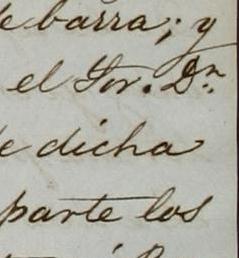 de barra; y
el Sor. Dn.
de dicha
parte los